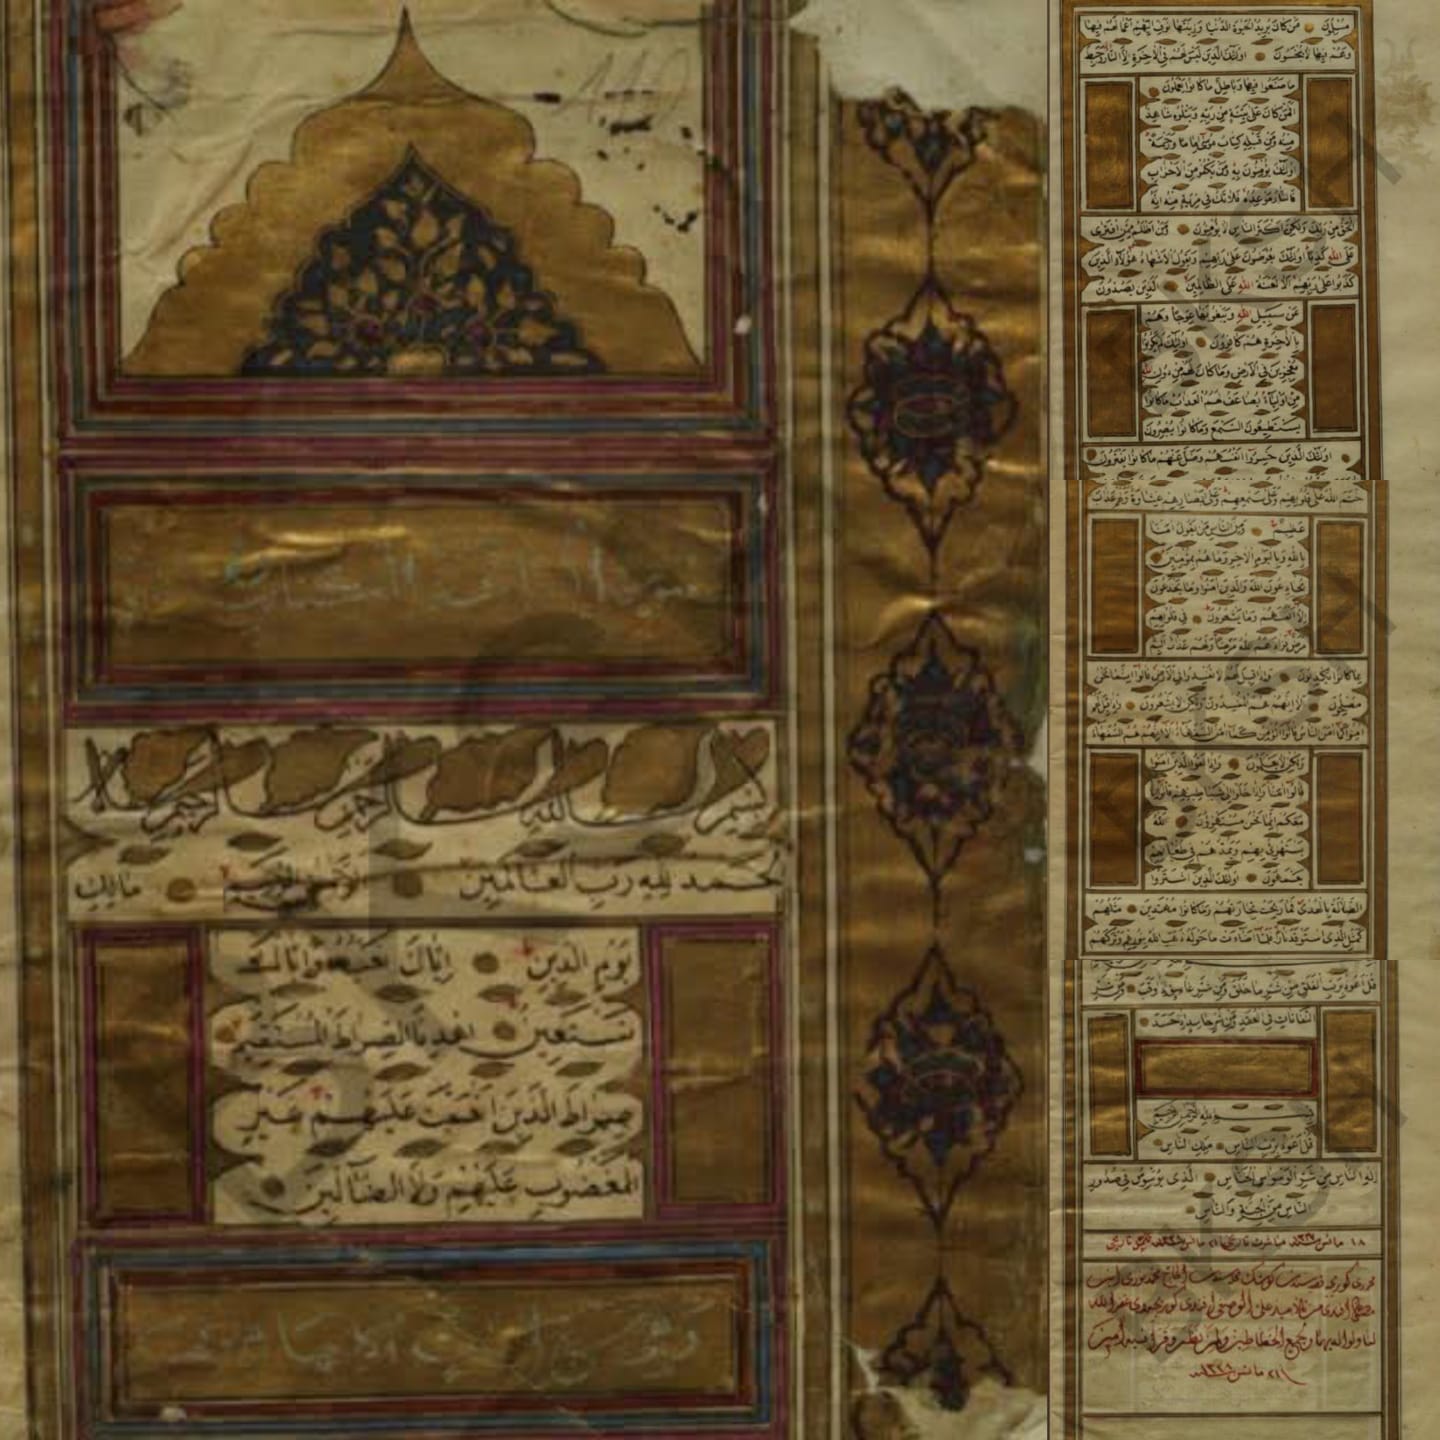 بسم الله الرحمن الرحيم
الحمد لله رب العالمين الرحمن الرحيم مالك
يَوْمِ الدِّينِ اِيَّاكَ نَعْبُدُ وَاِيَّاكَ
نَسْتَعِينُ اِهْدِنَا الصِّرَاطَ الْمُسْتَقِيمَ
صِرَاطَ الَّذِينَ اَنْعَمْتَ عَلَيْهِمْ غَيْرِ
الْمَغْضُوبِ عَلَيْهِمْ وَلَا الضَّالِّينَ
مسلمون من كان يريد الحيوة الدنيا وزينتها نوف اليهم اعمالهم فيها
وهم فيها لا يبخسون اولئك الذين ليس لهم في الاخرة الا النار وحبط
ما صنعوا فيها وباطل ما كانوا يعملون
افمن كان على بينة من ربه ويتلوه شاهد
منه ومن قبله كتاب موسى اماما ورحمة
اولئك يؤمنون به ومن يكفر به من الاحزاب
فالنار موعده فلا تك في مرية منه انه
الحق من ربك ولكن اكثر الناس لا يؤمنون ومن اظلم ممن افترى
على الله كذبا اولئك يعرضون على ربهم ويقول الاشهاد هؤلاء الذين
كذبوا على ربهم الا لعنة الله على الظالمين الذين يصدون
عن سبيل الله ويبغونها عوجا وهم
بالاخرة هم كافرون اولئك لم يكونوا
معجزين في الارض وما كان لهم من دون الله
من اولياء يضاعف لهم العذاب ما كانوا
يستطيعون السمع وما كانوا يبصرون
اولئك الذين خسروا انفسهم وضل عنهم ما كانوا يفترون
ختم الله على قلوبهم وعلى سمعهم وعلى ابصارهم غشاوة ولهم عذاب
عظيم ومن الناس من يقول امنا
بالله وباليوم الاخر وما هم بمؤمنين
يخادعون الله والذين امنوا وما يخدعون
الا انفسهم وما يشعرون في قلوبهم
مرض فزادهم الله مرضا ولهم عذاب اليم
بما كانوا يكذبون واذا قيل لهم لا تفسدوا في الارض قالوا انما نحن
مصلحون الا انهم هم المفسدون ولكن لا يشعرون واذا قيل لهم
امنوا كما امن الناس قالوا انؤمن كما امن السفهاء الا انهم هم السفهاء
ولكن لا يعلمون واذا لقوا الذين امنوا
قالوا امنا واذا خلوا الى شياطينهم قالوا انا
معكم انما نحن مستهزؤن الله
يستهزئ بهم ويمدهم في طغيانهم
يعمهون اولئك الذين اشتروا
الضلالة بالهدى فما ربحت تجارتهم وما كانوا مهتدين مثلهم
كمثل الذي استوقد نارا فلما اضاءت ما حوله ذهب الله بنورهم وتركهم
قل اعوذ برب الفلق من شر ما خلق ومن شر غاسق اذا وقب ومن شر
النفاثات في العقد ومن شر حاسد اذا حسد
بسم الله الرحمن الرحيم
قل اعوذ برب الناس ملك الناس
اله الناس من شر الوسواس الخناس الذي يوسوس في صدور
الناس من الجنة والناس